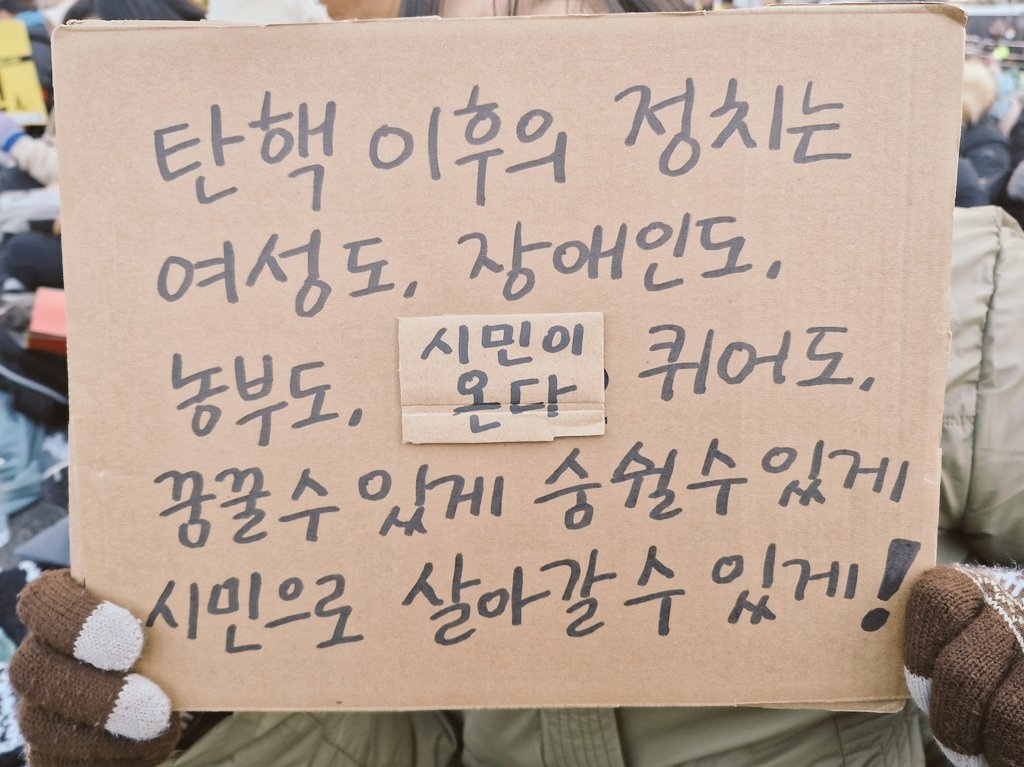 탄핵 이후의 정치는
여성도, 장애인도,
농부도, 퀴어도,
시민이
온다
꿈꿀 수 있게 숨쉴 수 있게
시민으로 살아갈 수 있게!